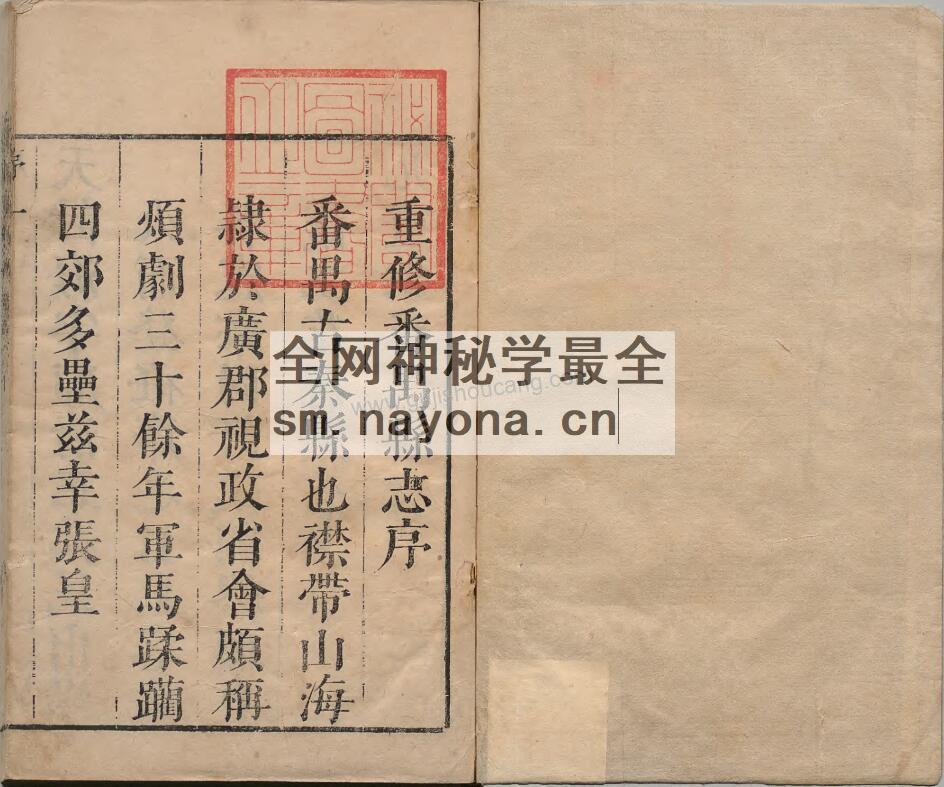 重修番禺縣志序
番禺古秦縣也襟帶山海
隷於廣郡視政省會頗稱
煩劇三十餘年軍馬蹂躪
四郊多壘茲幸張皇
序
一
全网神秘学最全
sm.nayona.cn